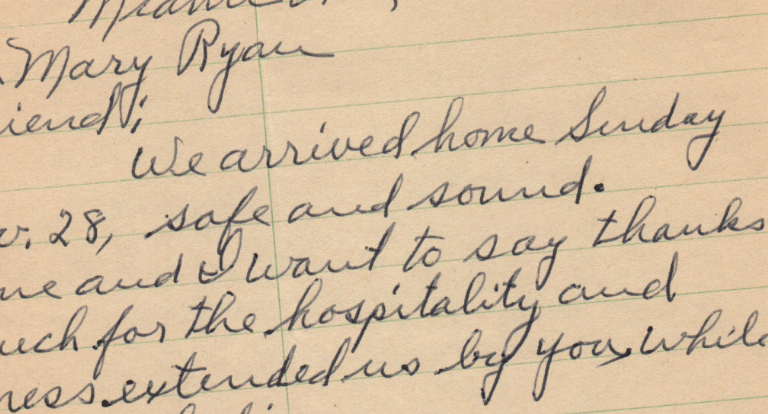 Mary Ryan
iend;
We arrived home Sunday
v. 28, safe and sound.
me and I want to say thanks
uch for the hospitality and
ness extended us by you, while